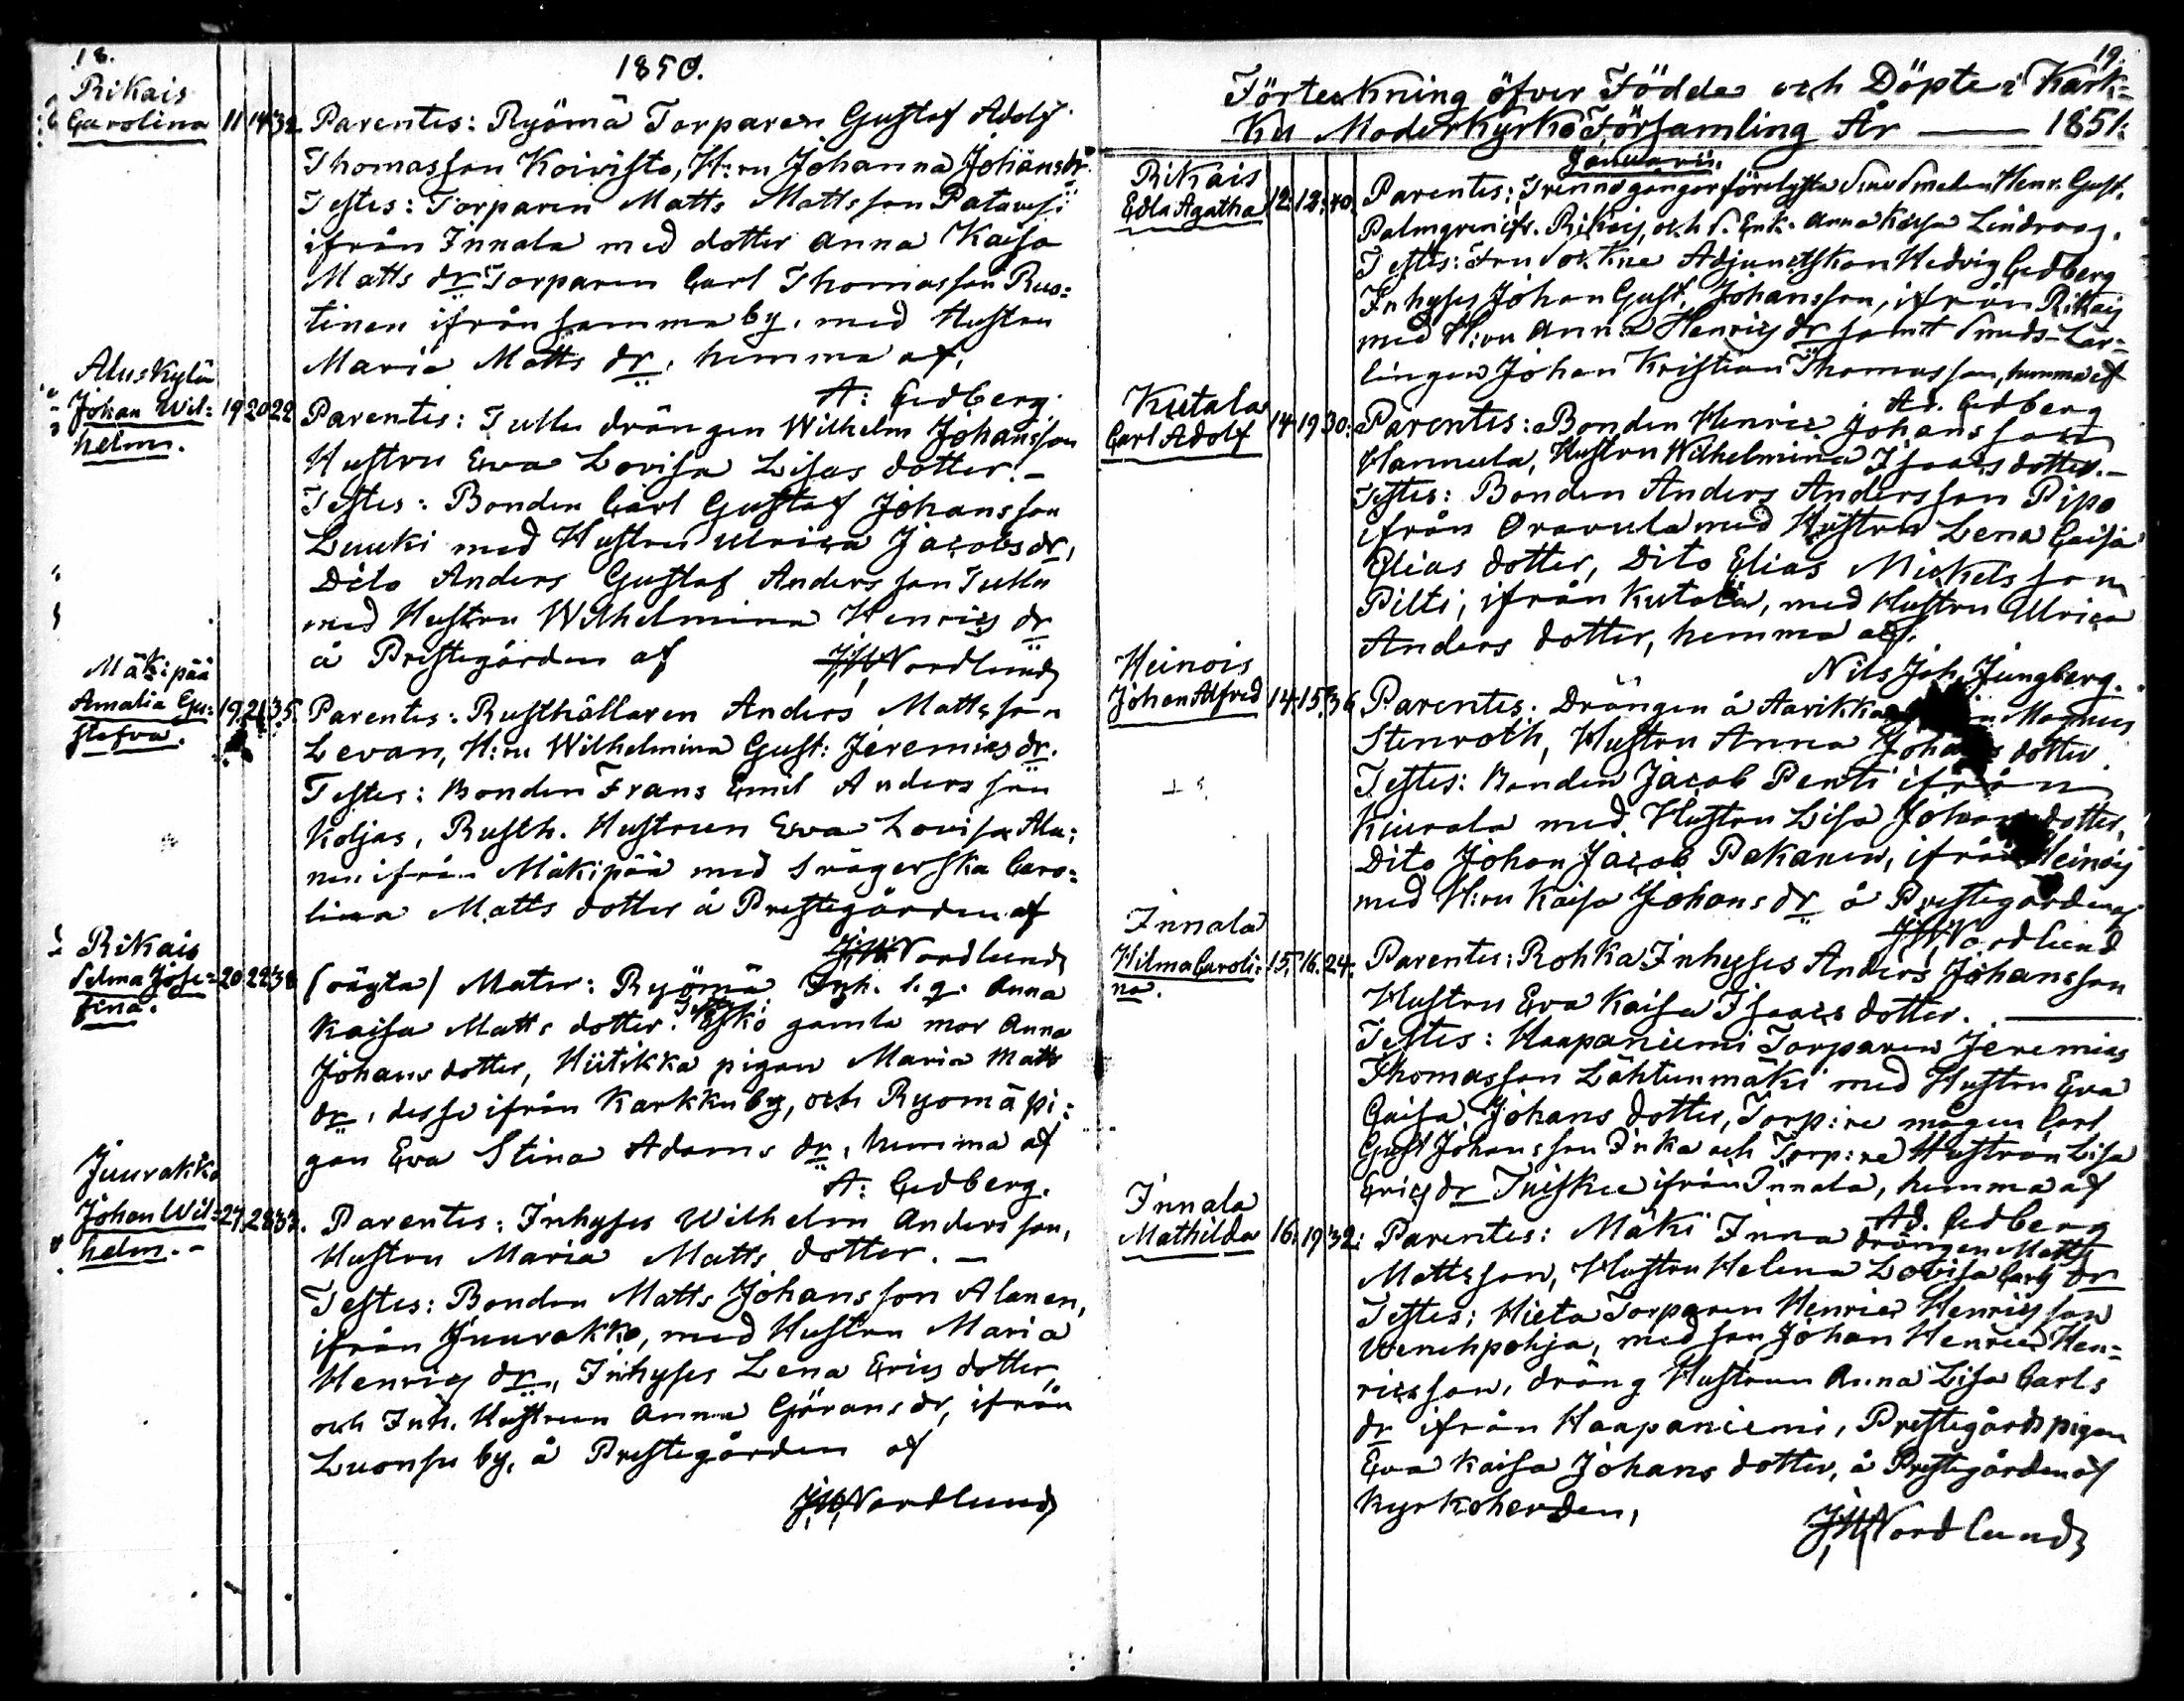 18.
1850.
Rikais
Carolina 11 14 32 Parentes: Ryömä Torparen Gustaf Adolf
Thomasson Koivisto, H:ru Johanna Johansdr
Testes: Torparen Matts Mattsson Patavesi
ifrån Innala med dotter Anna Kaisa
Matts dr Torparen Carl Thomasson Ruo=
tinen ifrån samma by, med Hustru
Maria Matts dr, hemma af,
A: Cedberg.
Aluskylä
Johan Wil= 19 20 22 Parentes: Tulla drängen Wilhelm Johansson
helm.
Hustru Ewa Lovisa Lisas dotter.–
Testes: Bonden Carl Gustaf Johansson
Luuki med Hustru Ulrica Jacobsdr,
Dito Anders Gustaf Andersson Tulla
med Hustru Wilhelmina Henrics dr
å Prestegården af J,W,Nordlund
Mäkipää
Amalia Gu= 19. 21. 35. Parentes: Rusthållaren Anders Mattsson
stafva.
Levan, H:ru Wilhelmina Gust: Jeremiesdr.
Testes: Bonden Frans Emil Andersson
Koljas, Rusth. Hustrun Ewa Lovisa Ala=
nen ifrån Mäkipää med Svägerska Caro=
lina Matts dotter å Prestegården af
J,W,Nordlund
Rikais
Selma Jose= 20 22 38 (oägta) Mater: Ryömä Inh. l.q. Anna
fina.
Kaisa Matts dotter. Testes: Eskö gamla mor Anna
Johans dotter, Hiitikka pigan Maria Matts
dr, desse ifrån Karkku by, och Ryomä pi=
gan Eva Stina Adams dr, hemma af
A: Cedberg.
Juurakko
Johan Wil= 27. 28 37. Parentes: Inhyses Wilhelm Andersson,
helm.–
Hustru Maria Matts dotter. –
Testes: Bonden Matts Johansson Alanen,
ifrån Juurakko, med Hustru Maria
Henrics dr, Inhyses Lena Erics dotter,
och Inh. Hustrun Anna Göransdr, ifrån
Luonsu by, å Prestegården af
J,W,Nordlund
19.
Förteckning öfver Födde och Döpte i Kark=
ku Moderkyrko Församling År —— 1851.
Januarii.
Rikais
Edla Agatha 12. 12. 40. Parentes: Trenne gångor förelysta Smeden Henr. Gust.
Palmgren ifr. Rikais, och S. Enk. Anna Kaisa Lindroos.
Testes: Fru Adjunctskan Hedvig Cedberg
Inhyses Johan Gust. Johansson, ifrån Rikais
med H:ru Anna Henrics dr samt Smeds-Lär=
lingen Johan Kristian Thomasson, hemma af
Ad. Cedberg
Kutala
Carl Adolf 14 19 30. Parentes: Bonden Henric Johansson
Hannula, Hustru Wilhelmina Isaacs dotter.–
Testes: Bonden Anders Andersson Pipo
ifrån Oravula med Hustru Lena Caisa
Elias dotter, Dito Elias Mickelsson
Pilti, ifrån Kutala, med Hustru Ulrica
Anders dotter, hemma af.
Nils Joh. Jungberg.
Heinois
Johan Alfred 14. 15. 36 Parentes: Drängen å Aarikka Magnus
Stenroth, Hustru Anna Johans dotter.
Testes: Bonden Jacob Penti ifrån
Kiurala med Hustru Lisa Johans dotter,
Dito Johan Jacob Pakanen, ifrån Heinois
med H:ru Kaisa Johans dr å Prestegården af
J,W,Nordlund
Innala
Hilma Caroli= 15. 16. 24. Parentes: Rohka Inhyses Anders Johansson
na.
Hustru Eva Kaisa Isaacs dotter. ——
Testes: Haapaniemi Torparen Jeremias
Thomasson Lähteenmäki med Hustru Eva
Caisa Johans dotter, Torp:re mågen Carl
Gust Johansson Inka och Torp:re Hustrun Lisa
Erics dr Tuiskee ifrån Innala, hemma af
Ad. Cedberg
Innala
Mathilda 16. 19 32. Parentes: Mäki Inna drängen Matts
Mattsson, Hustru Helena Lovisa Carls dr
Testes: Hieta Torparen Henric Henricsson
Wenehpohja, med son Johan Henric Hen=
ricsson, dräng Hustrun Anna Lisa Carls
dr ifrån Haapaniemi, Prestegårds pigan
Eva Kaisa Johans dotter, å Prestegården af
Kyrkoherden,
J,W,Nordlund